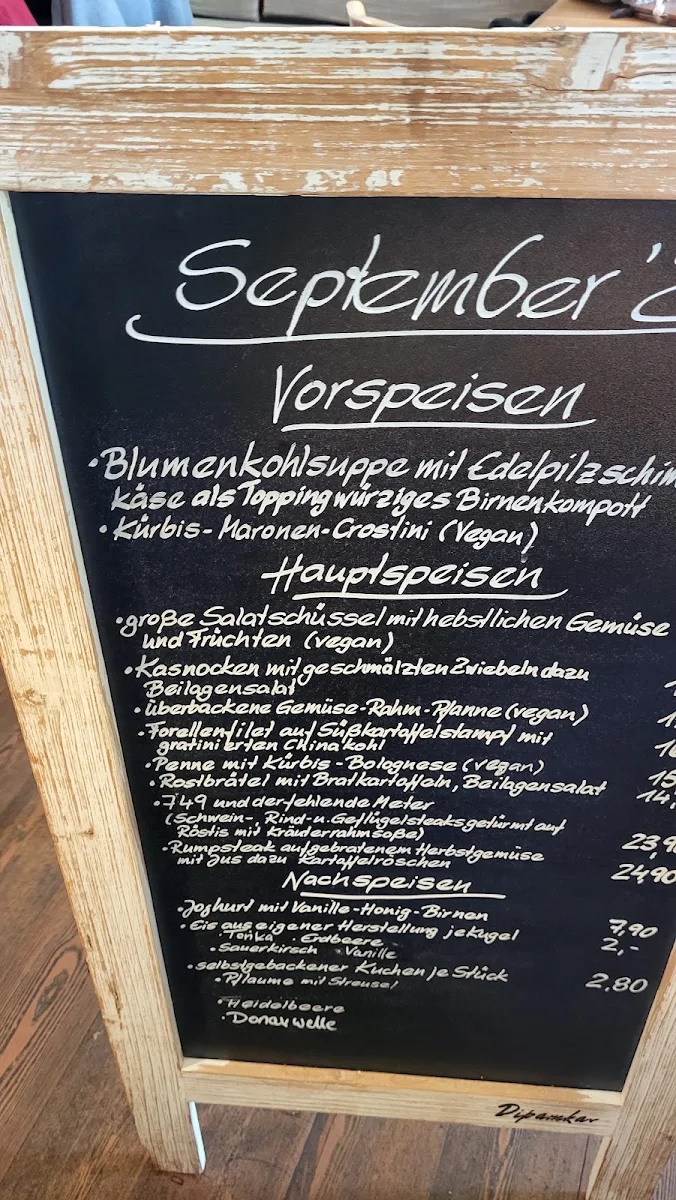 September '2
Vorspeisen
• Blumenkohlsuppe mit Edelpilzschim
käse als Topping würziges Birnenkompott
• Kürbis-Maronen-Crostini (Vegan)
Hauptspeisen
• große Salatschüssel mit hebstlichen Gemüse
und Früchten (vegan)
• Kasnocken mit geschmälzten Zwiebeln dazu
Beilagensalat
• überbackene Gemüse-Rahm-Pfanne (vegan)
• Forellenfilet auf Süßkartoffelstampf mit
gratinierten Chinakohl
• Penne mit Kürbis-Bolognese (vegan) 15
• Rostbrätel mit Bratkartoffeln, Beilagensalat 14,
• 749 und der fehlende Meter
(Schwein-, Rind- u. Geflügelsteaks getürmt auf
Röstis mit Kräuterrahmsoße) 23,9
• Rumpsteak auf gebratenem Herbstgemüse
mit Jus dazu Kartoffelröschen 24,90
Nachspeisen
• Joghurt mit Vanille-Honig-Birnen 7,90
• Eis aus eigener Herstellung je Kugel 2,-
• Tonka • Erdbeere
• Sauerkirsch • Vanille
• selbstgebackener Kuchen je Stück 2.80
• Pflaume mit Streusel
• Heidelbeere
• Donauwelle
Dipamkar